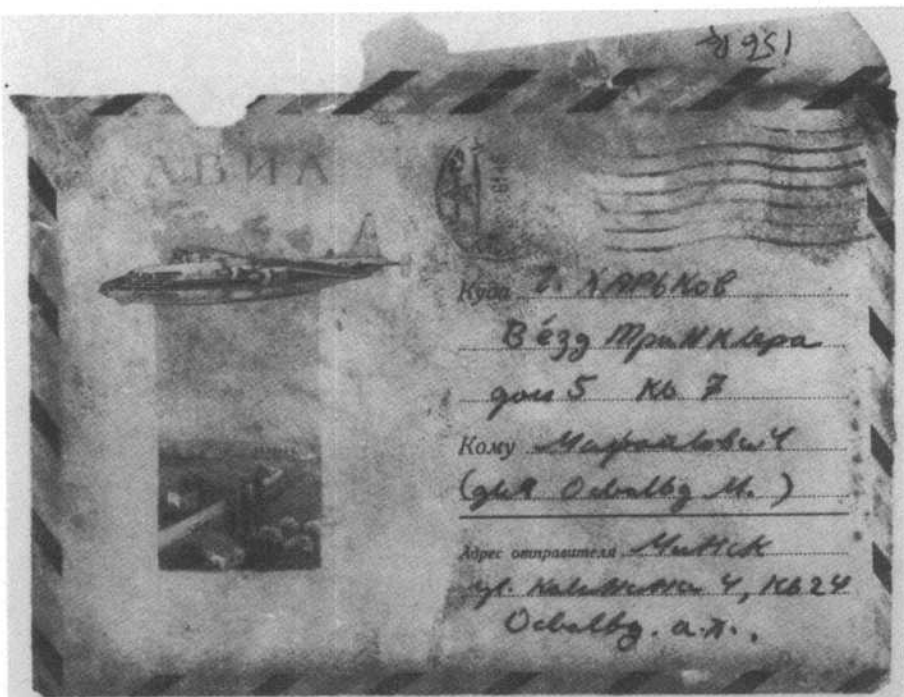 156 B
АВИА
Куда г. ХАРЬКОВ
Вёзд Тринклера
дом 5 кв 7
Кому
(для Освальд М.)
Адрес отправителя Минск
ул. Калинина 4, кв 24
Освальд. а.